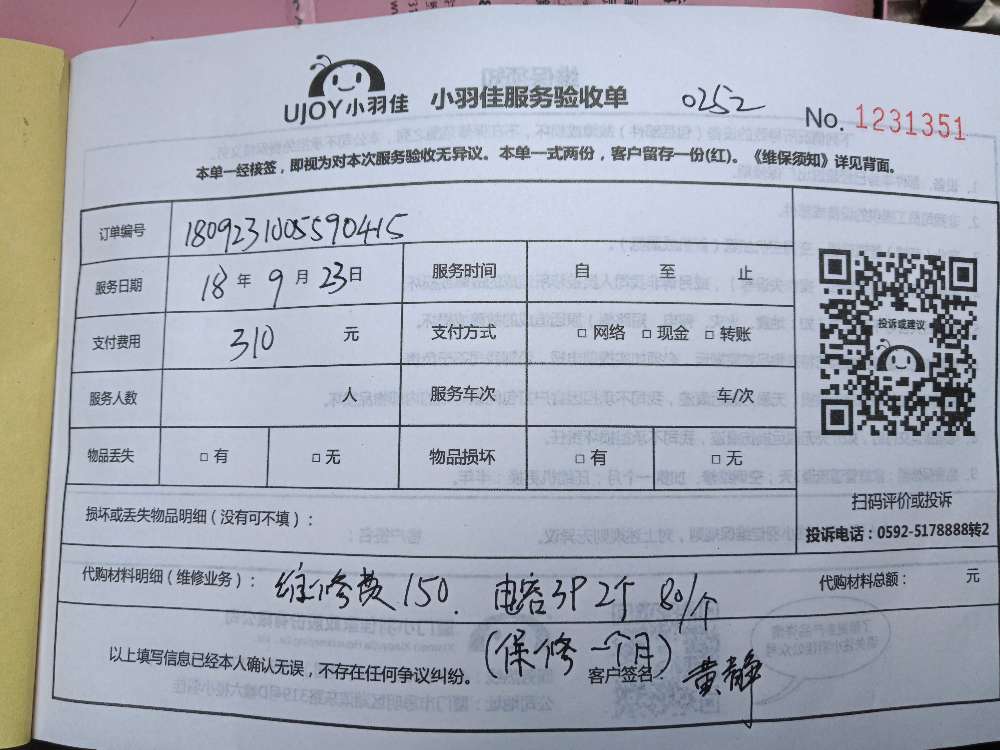 UJOY小羽佳 小羽佳服务验收单 0252 No. 1231351
本单一经核签，即视为对本次服务验收无异议。本单一式两份，客户留存一份(红)。《维保须知》详见背面。
订单编号 1809231005590415
服务日期 18 年 9 月 23 日 服务时间 自 至 止
支付费用 310 元 支付方式 □ 网络 □ 现金 □ 转账
投诉或建议
服务人数 人 服务车次 车/次
物品丢失 □ 有 □ 无 物品损坏 □ 有 □ 无
扫码评价或投诉
损坏或丢失物品明细（没有可不填）：
投诉电话：0592-5178888转2
代购材料明细（维修业务）： 维修费150. 电容3P 2个 80/个 代购材料总额： 元
(保修一个月)
以上填写信息已经本人确认无误，不存在任何争议纠纷。 客户签名： 黄静